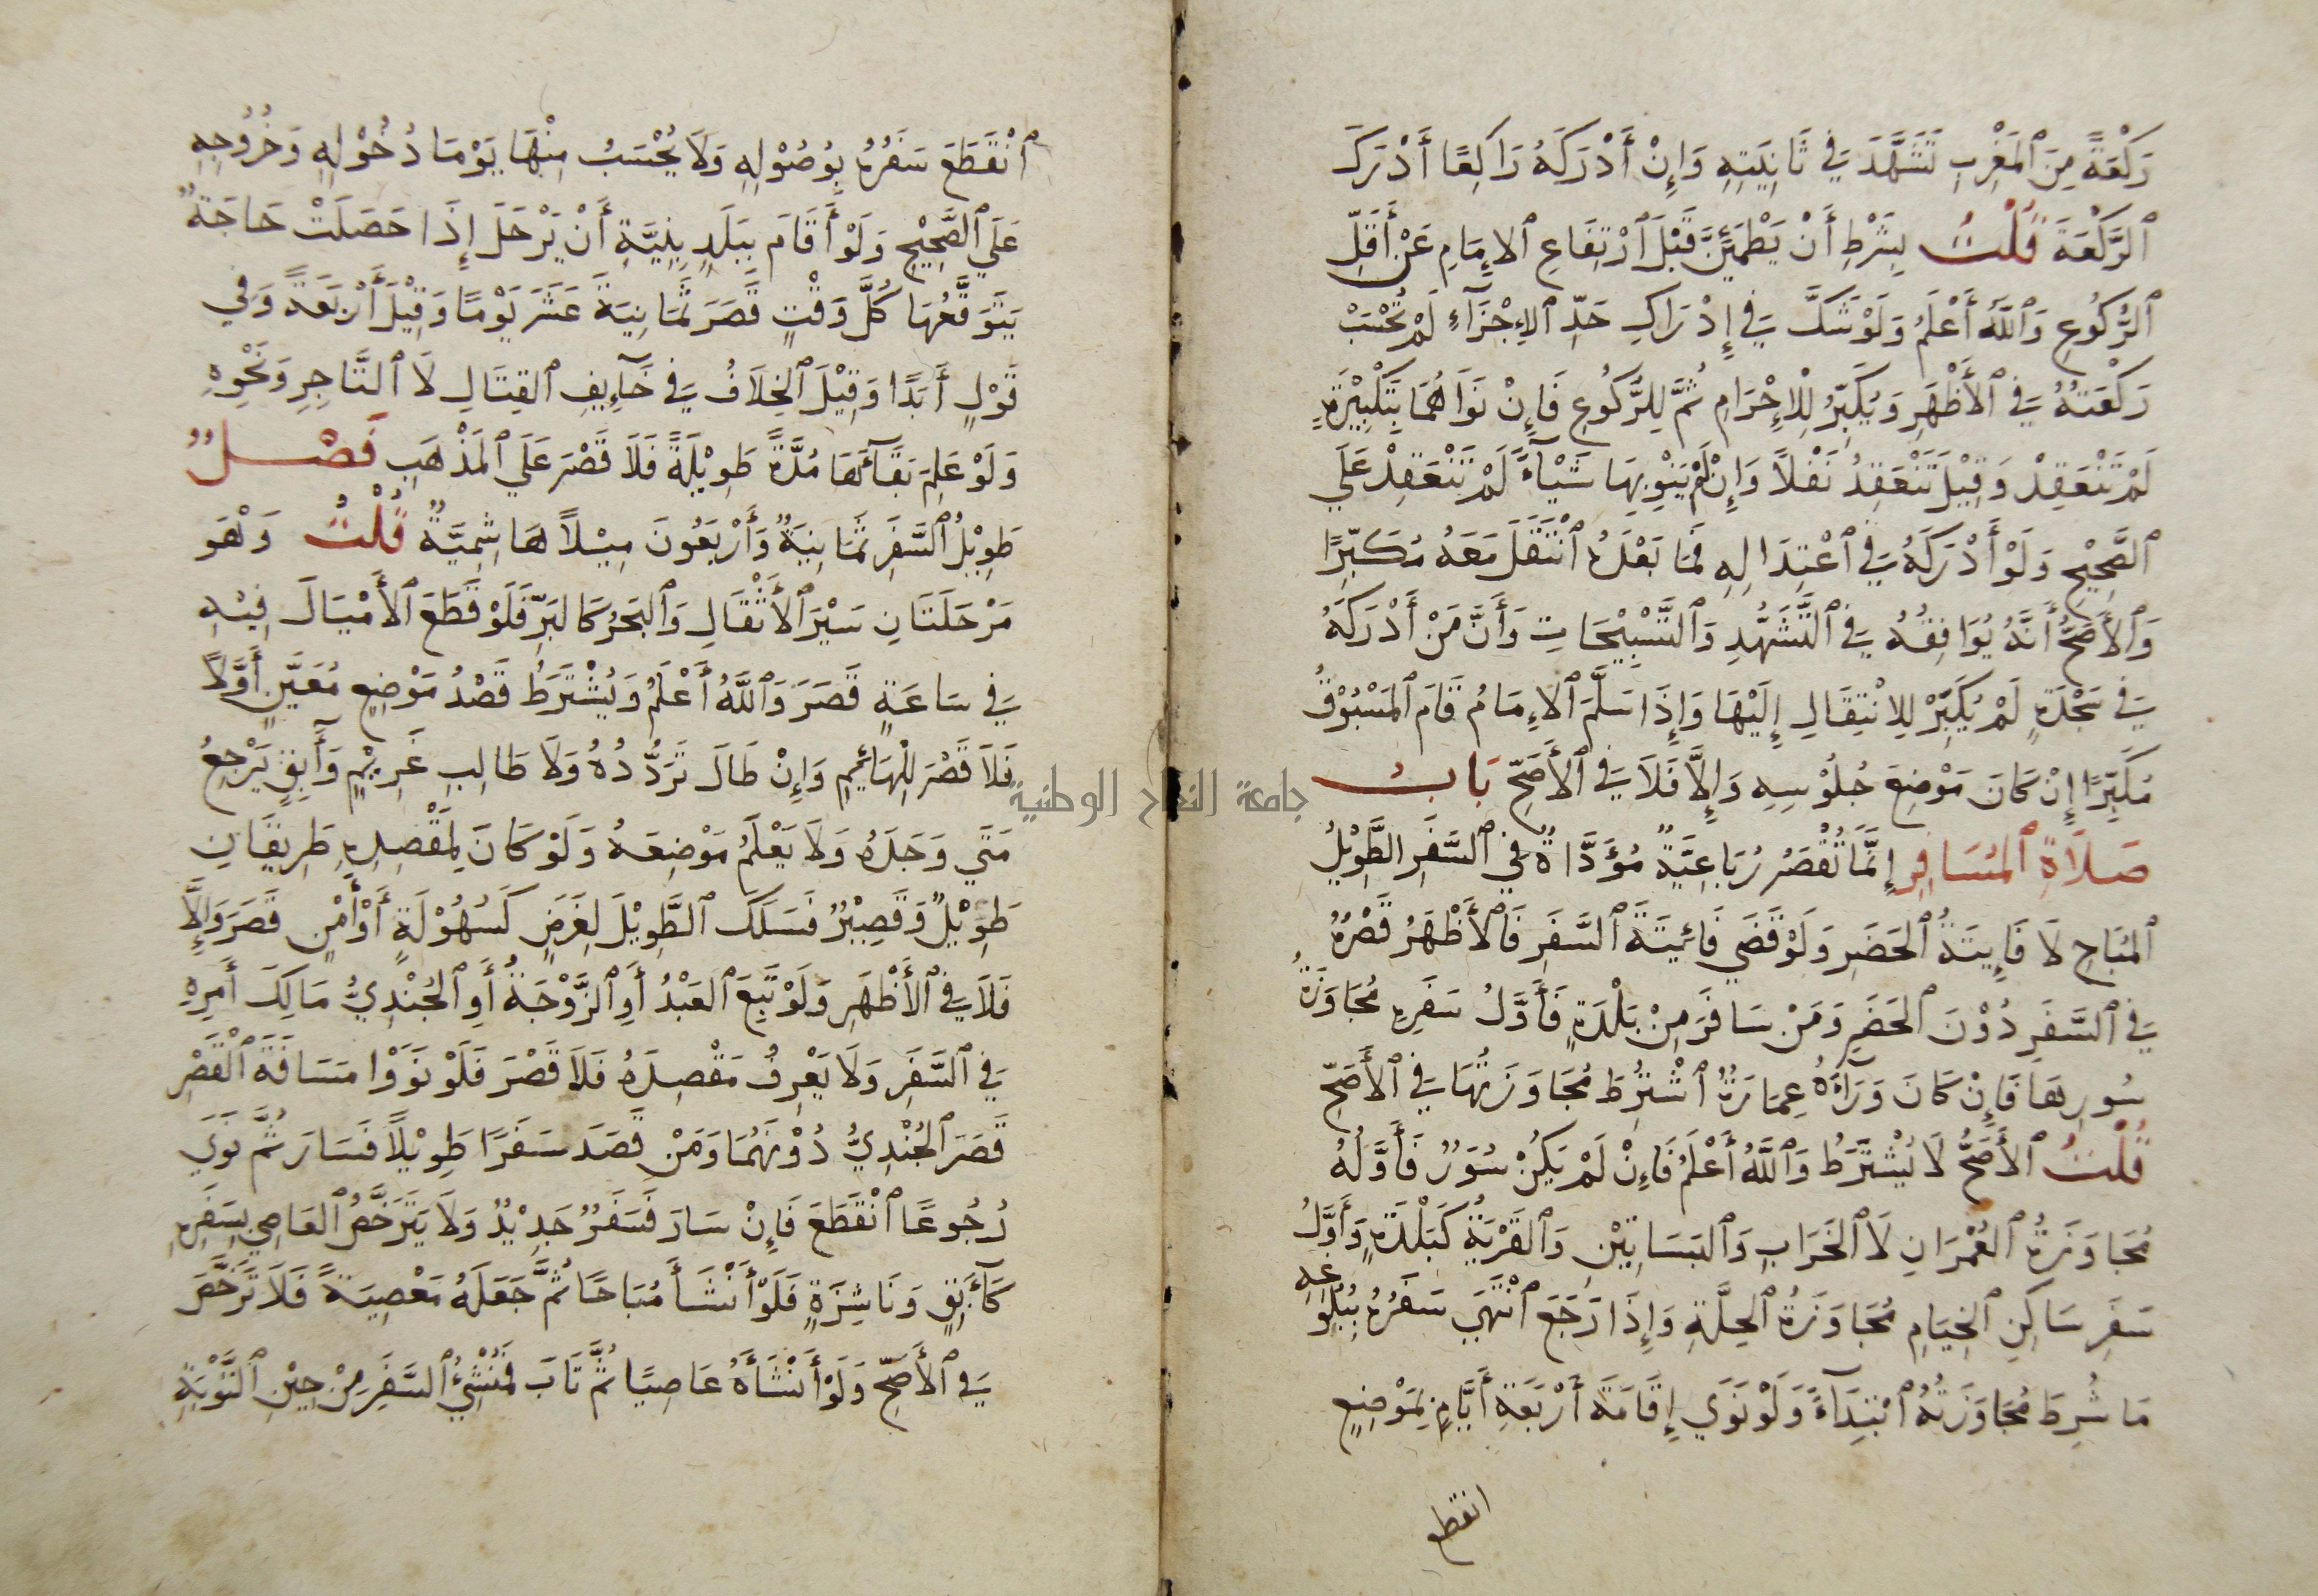 رَكْعَةً مِنَ ٱلْمَغْرِبِ تَشَهَّدَ فِي ثَانِيَتِهِ وَإِنْ أَدْرَكَهُ رَاكِعًا أَدْرَكَ
ٱلرَّكْعَةَ قُلْتُ بِشَرْطِ أَنْ يَطْمَئِنَّ قَبْلَ ٱرْتِفَاعِ ٱلإِمَامِ عَنْ أَقَلِّ
ٱلرُّكُوعِ وَٱللَّهُ أَعْلَمُ وَلَوْ شَكَّ فِي إِدْرَاكِ حَدِّ ٱلإِجْزَآءِ لَمْ تُحْسَبْ
رَكْعَتُهُ فِي ٱلأَظْهَرِ وَيُكَبِّرُ لِلْإِحْرَامِ ثُمَّ لِلرُّكُوعِ فَإِنْ نَوَاهُمَا بِتَكْبِيْرَةٍ
لَمْ تَنْعَقِدْ وَقِيْلَ تَنْعَقِدُ نَفْلاً وَإِنْ لَمْ يَنْوِ بِهَا شَيْاءً لَمْ تَنْعَقِدْ عَلَي
ٱلصَّحِيْحِ وَلَوْ أَدْرَكَهُ فِي ٱعْتِدَالِهِ فَمَا بَعْدَهُ ٱنْتَقَلَ مَعَهُ مُكَبِّرًا
وَٱلأَصَحُّ أَنَّهُ يُوَافِقُهُ فِي ٱلتَّشَهُّدِ وَٱلتَّسْبِيْحَاتِ وَأَنَّ مَنْ أَدْرَكَهُ
فِي سَجْدَةٍ لَمْ يُكَبِّرْ لِلِانْتِقَالِ إِلَيْهَا وَإِذَا سَلَّمَ ٱلاءِمَامُ قَامَ ٱلمَسْبُوْقُ
مُكَبِّرًا إِنْ كَانَ مَوْضِعَ جُلُوْسِهِ وَإِلَّا فَلَا فِي ٱلأَصَحِّ بَابُ
صَلَاةِ ٱلمُسَافِرِ إِنَّمَا تُقْصَرُ رُبَاعِيَّةٌ مُؤَدَّاةٌ فِي ٱلسَّفَرِ الطَّوِيْلُ
ٱلمُبَاحِ لَا فَايِتَةُ ٱلحَضَرِ وَلَوْ قَضَي فَائِيتَةَ ٱلسَّفَرِ فَٱلأَظْهَرُ قَصْرُهُ
فِي ٱلسَّفَرِ دُوْنَ ٱلحَضَرِ وَمَنْ سَافَرَ مِنْ بَلْدَةٍ فَأَوَّلُ سَفَرِهِ مُجَاوَزَةُ
سُورِهَا فَإِنْ كَانَ وَرَآءَهُ عِمَارَةٌ ٱشْتُرِطَ مُجَاوَزَتُهَا فِي ٱلأَصَحِّ
قُلْتُ ٱلأَصَحُّ لَا يُشْتَرَطُ وَٱللَّهُ أَعْلَمُ فَإِنْ لَمْ يَكُنْ سُوَرٌ فَأَوَّلُهُ
مُجَاوَزَةُ ٱلعُمْرَانِ لَا ٱلخَرَابِ وَٱلبَسَاتِيْنِ وَٱلقَرْيَةُ كَبَلْدَةٍ وَأَوَّلُ
سَفَرِ سَاكِنِ ٱلخِيَامِ مُجَاوَزَةُ ٱلحِلَّةِ وَإِذَا رَجَعَ ٱنْتَهَي سَفَرُهُ بِبُلُوْغِهِ
مَا شُرِطَ مُجَاوَزَتُهُ ٱبْتِدَآءً وَلَوْ نَوَي إِقَامَةَ أَرْبَعَةِ أَيَّامٍ بِمَوْضِعٍ
انقطع
ٱنْقَطَعَ سَفَرُهُ بِوُصُوْلِهِ وَلَا يُحْسَبُ مِنْهَا يَوْمَا دُخُوْلِهِ وَخُرُوْجِهِ
عَلَي ٱلصَّحِيْحِ وَلَوْ أَقَامَ بِبَلَدٍ بِنِيَّةِ أَنْ يَرْحَلَ إِذَا حَصَلَتْ حَاجَةٌ
يَتَوَقَّعُهَا كُلَّ وَقْتٍ قَصَرَ ثَمَانِيَةَ عَشَرَ يَوْمًا وَقِيْلَ أَرْبَعَةً وَفِي
قَوْلٍ أَبَدًا وَقِيْلَ ٱلخِلَافُ فِي خَآيِفِ ٱلقِتَالِ لَا ٱلتَّاجِرِ وَنَحْوِهِ
وَلَوْ عَلِمَ بَقَآءَهَا مُدَّةً طَوِيْلَةً فَلَا قَصْرَ عَلَي ٱلمَذْهَبِ فَصْلٌ
طَوِيْلُ ٱلسَّفَرِ ثَمَانِيَةٌ وَأَرْبَعُونَ مِيْلاً هَاشِمِيَّةٌ قُلْتُ وَهْوَ
مَرْحَلَتَانِ سَيْرَ ٱلأَثْقَالِ وَٱلبَحْرُ كَالبَرِّ فَلَوْ قَطَعَ ٱلأَمْيَالَ فِيْهِ
فِي سَاعَةٍ قَصَرَ وَٱللَّهُ أَعْلَمُ وَيُشْتَرَطُ قَصْدُ مَوْضِعٍ مُعَيَّنٍ أَوَّلاً
فَلَا قَصْرَ لِلْهَائِيمِ وَإِنْ طَالَ تَرَدُّدُهُ وَلَا طَالِبِ غَرِيْمٍ وَآبِقٍ يَرْجِعُ
مَتَي وَجَدَهُ وَلَا يَعْلَمُ مَوْضِعَهُ وَلَوْ كَانَ لِمَقْصِدِهِ طَرِيقَانِ
طَوِيْلٌ وَقَصِيْرٌ فَسَلَكَ ٱلطَّوِيْلَ لِغَرَضٍ كَسُهُوْلَةٍ أَوْ أَمْنٍ قَصَرَ وَإِلَّا
فَلَا فِي ٱلأَظْهَرِ وَلَوْ تَبِعَ ٱلعَبْدُ أَوِ ٱلزَّوْجَةُ أَوِ ٱلجُنْدِيُّ مَالِكَ أَمرِهِ
فِي ٱلسَّفَرِ وَلَا يَعْرِفُ مَقْصِدَهُ فَلَا قَصْرَ فَلَوْ نَوَوْا مَسَافَةَ ٱلْقَصْرِ
قَصَرَ ٱلجُنْدِيُّ دُوْنَهُمَا وَمَنْ قَصَدَ سَفَرًا طَوِيْلاً فَسَارَ ثُمَّ نَوَي
رُجُوعًا ٱنْقَطَعَ فَإِنْ سَارَ فَسَفَرٌ جَدِيْدٌ وَلَا يَتَرَخَّصُ ٱلعَاصِي بِسَفَرِهِ
كَآبِقٍ وَنَاشِزَةٍ فَلَوْ أَنْشَأَ مُبَاحًا ثُمَّ جَعَلَهُ مَعْصِيَةً فَلَا تَرَخُّصَ
فِي ٱلأَصَحِّ وَلَوْ أَنْشَأَهُ عَاصِيًا ثُمَّ تَابَ فَمُنْشِئُ ٱلسَّفَرِ مِنْ حِيْنِ ٱلتَّوْبَةِ
جامعة النجاح الوطنية